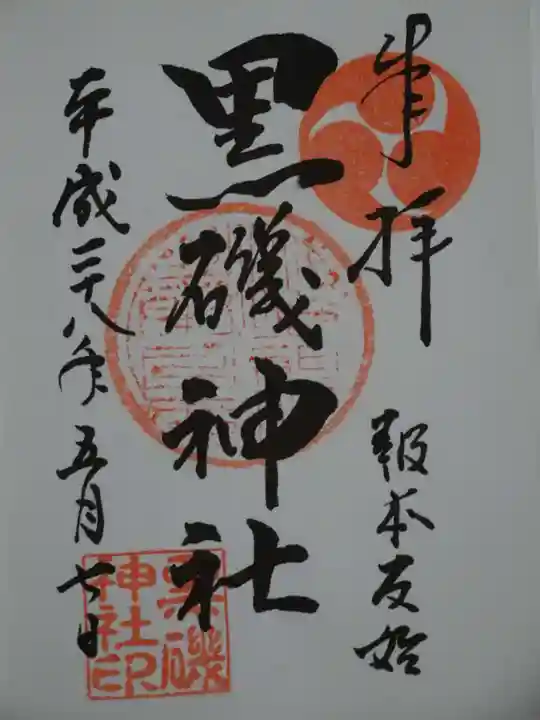 奉拝
報本反始
黒磯神社
平成二十八年五月七日
黒磯
神社印